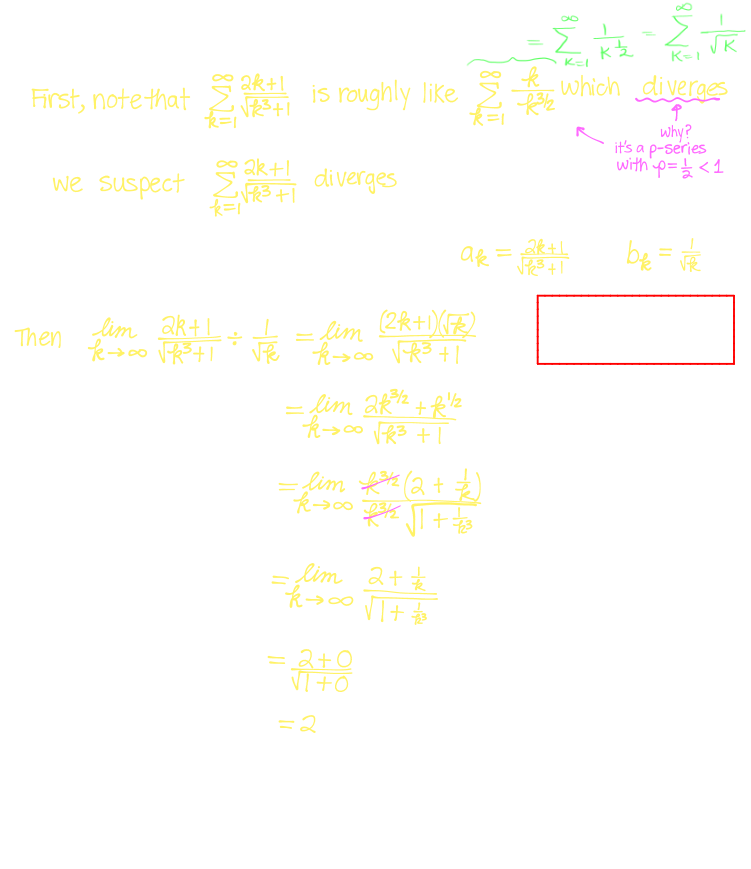 = ∑_{K=1}^{∞} 1/K^{1/2} = ∑_{K=1}^{∞} 1/√K
First, note that ∑_{k=1}^{∞} (2k+1)/√(k³+1) is roughly like ∑_{k=1}^{∞} k/k^{3/2} which diverges
why?
it's a p-series
with p = 1/2 < 1
we suspect ∑_{k=1}^{∞} (2k+1)/√(k³+1) diverges
a_k = (2k+1)/√(k³+1) b_k = 1/√k
Then lim_{k→∞} (2k+1)/√(k³+1) ÷ 1/√k = lim_{k→∞} (2k+1)(√k)/√(k³+1)
= lim_{k→∞} (2k^{3/2} + k^{1/2})/√(k³+1)
= lim_{k→∞} k^{3/2}(2 + 1/k)/(k^{3/2}√(1 + 1/k³))
= lim_{k→∞} (2 + 1/k)/√(1 + 1/k³)
= (2+0)/√(1+0)
= 2